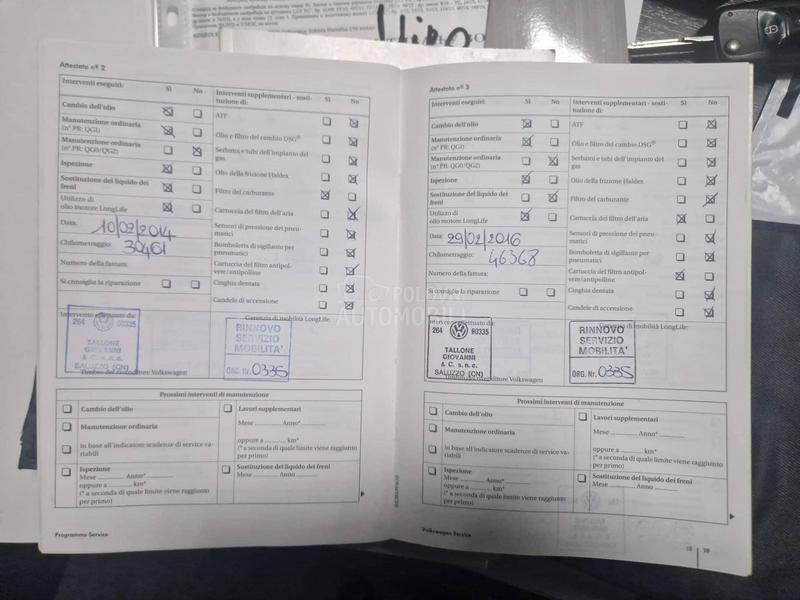 Attestato nº 2
Interventi eseguiti: Sì No
Cambio dell'olio
Manutenzione ordinaria
(nº PR: QG1)
Manutenzione ordinaria
(nº PR: QG0/QG2)
Ispezione
Sostituzione del liquido dei
freni
Utilizzo di
olio motore LongLife
Data: 10/02/2014
Chilometraggio: 30461
Numero della fattura:
Si consiglia la riparazione
Interventi supplementari - sosti-
tuzione di: Sì No
ATF
Olio e filtro del cambio DSG®
Serbatoi e tubi dell'impianto del
gas
Olio della frizione Haldex
Filtro del carburante
Cartuccia del filtro dell'aria
Sensori di pressione dei pneu-
matici
Bomboletta di sigillante per
pneumatici
Cartuccia del filtro antipol-
vere/antipolline
Cinghia dentata
Candele di accensione
Intervento effettuato da:
Garanzia di mobilità LongLife:
264 60335
TALLONE
GIOVANNI
& C. s.n.c.
SALUZZO (CN)
RINNOVO
SERVIZIO
MOBILITA'
ORG. Nr. 0335
Timbro del rivenditore Volkswagen
Prossimi interventi di manutenzione
Cambio dell'olio
Manutenzione ordinaria
in base all'indicatore scadenze di service va-
riabili
Ispezione
Mese Anno*
oppure a km*
(* a seconda di quale limite viene raggiunto
per primo)
Lavori supplementari
Mese Anno*
oppure a km*
(* a seconda di quale limite viene raggiunto
per primo)
Sostituzione del liquido dei freni
Mese Anno
Programma Service
Attestato nº 3
Interventi eseguiti: Sì No
Cambio dell'olio
Manutenzione ordinaria
(nº PR: QG1)
Manutenzione ordinaria
(nº PR: QG0/QG2)
Ispezione
Sostituzione del liquido dei
freni
Utilizzo di
olio motore LongLife
Data: 29/02/2016
Chilometraggio: 46368
Numero della fattura:
Si consiglia la riparazione
Interventi supplementari - sosti-
tuzione di: Sì No
ATF
Olio e filtro del cambio DSG®
Serbatoi e tubi dell'impianto del
gas
Olio della frizione Haldex
Filtro del carburante
Cartuccia del filtro dell'aria
Sensori di pressione dei pneu-
matici
Bomboletta di sigillante per
pneumatici
Cartuccia del filtro antipol-
vere/antipolline
Cinghia dentata
Candele di accensione
Intervento effettuato da:
Garanzia di mobilità LongLife:
264 60335
TALLONE
GIOVANNI
& C. s.n.c.
SALUZZO (CN)
RINNOVO
SERVIZIO
MOBILITA'
ORG. Nr. 0335
Timbro del rivenditore Volkswagen
Prossimi interventi di manutenzione
Cambio dell'olio
Manutenzione ordinaria
in base all'indicatore scadenze di service va-
riabili
Ispezione
Mese Anno*
oppure a km*
(* a seconda di quale limite viene raggiunto
per primo)
Lavori supplementari
Mese Anno*
oppure a km*
(* a seconda di quale limite viene raggiunto
per primo)
Sostituzione del liquido dei freni
Mese Anno
Volkswagen Service
19